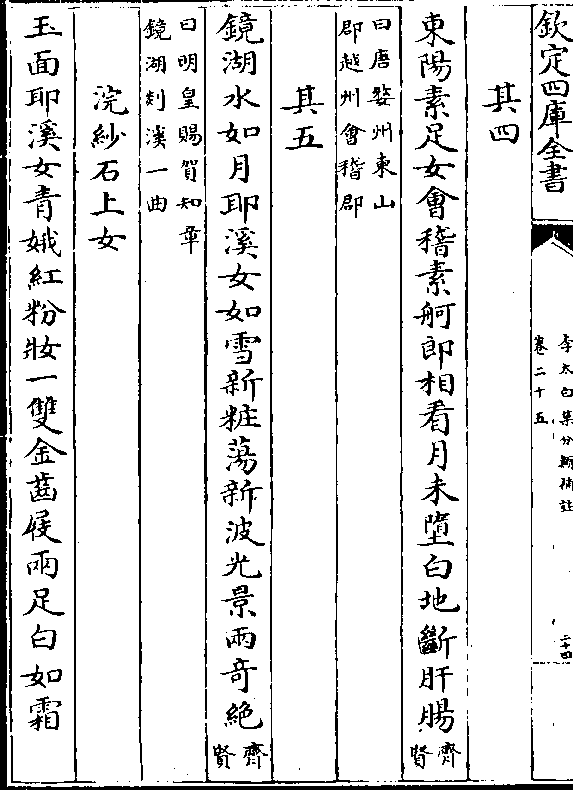 欽定四庫全書
李太白集分類補註
卷二十五
二十四
其四
東陽素足女會稽素舸郎相看月未墮白地斷肝腸齊賢
曰唐婺州東山
郡越州會稽郡
其五
鏡湖水如月耶溪女如雪新粧蕩新波光景兩奇絶齊賢
曰明皇賜賀知章
鏡湖剡溪一曲
浣紗石上女
玉面耶溪女青娥紅粉妝一雙金齒屐兩足白如霜